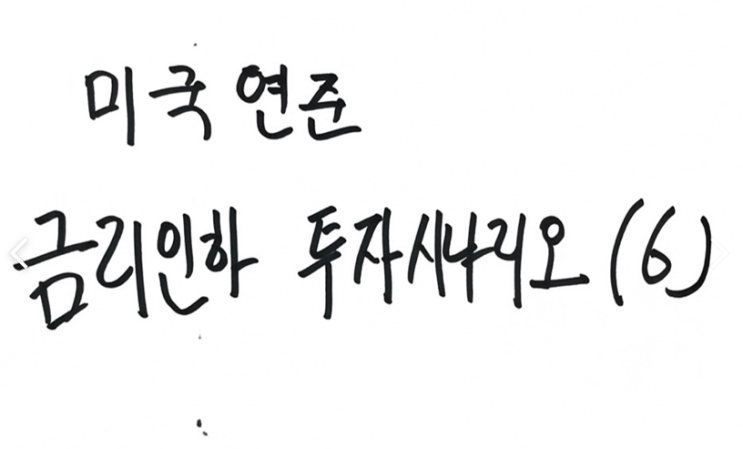 미국 연준
금리인하 투자시나리오 (6)